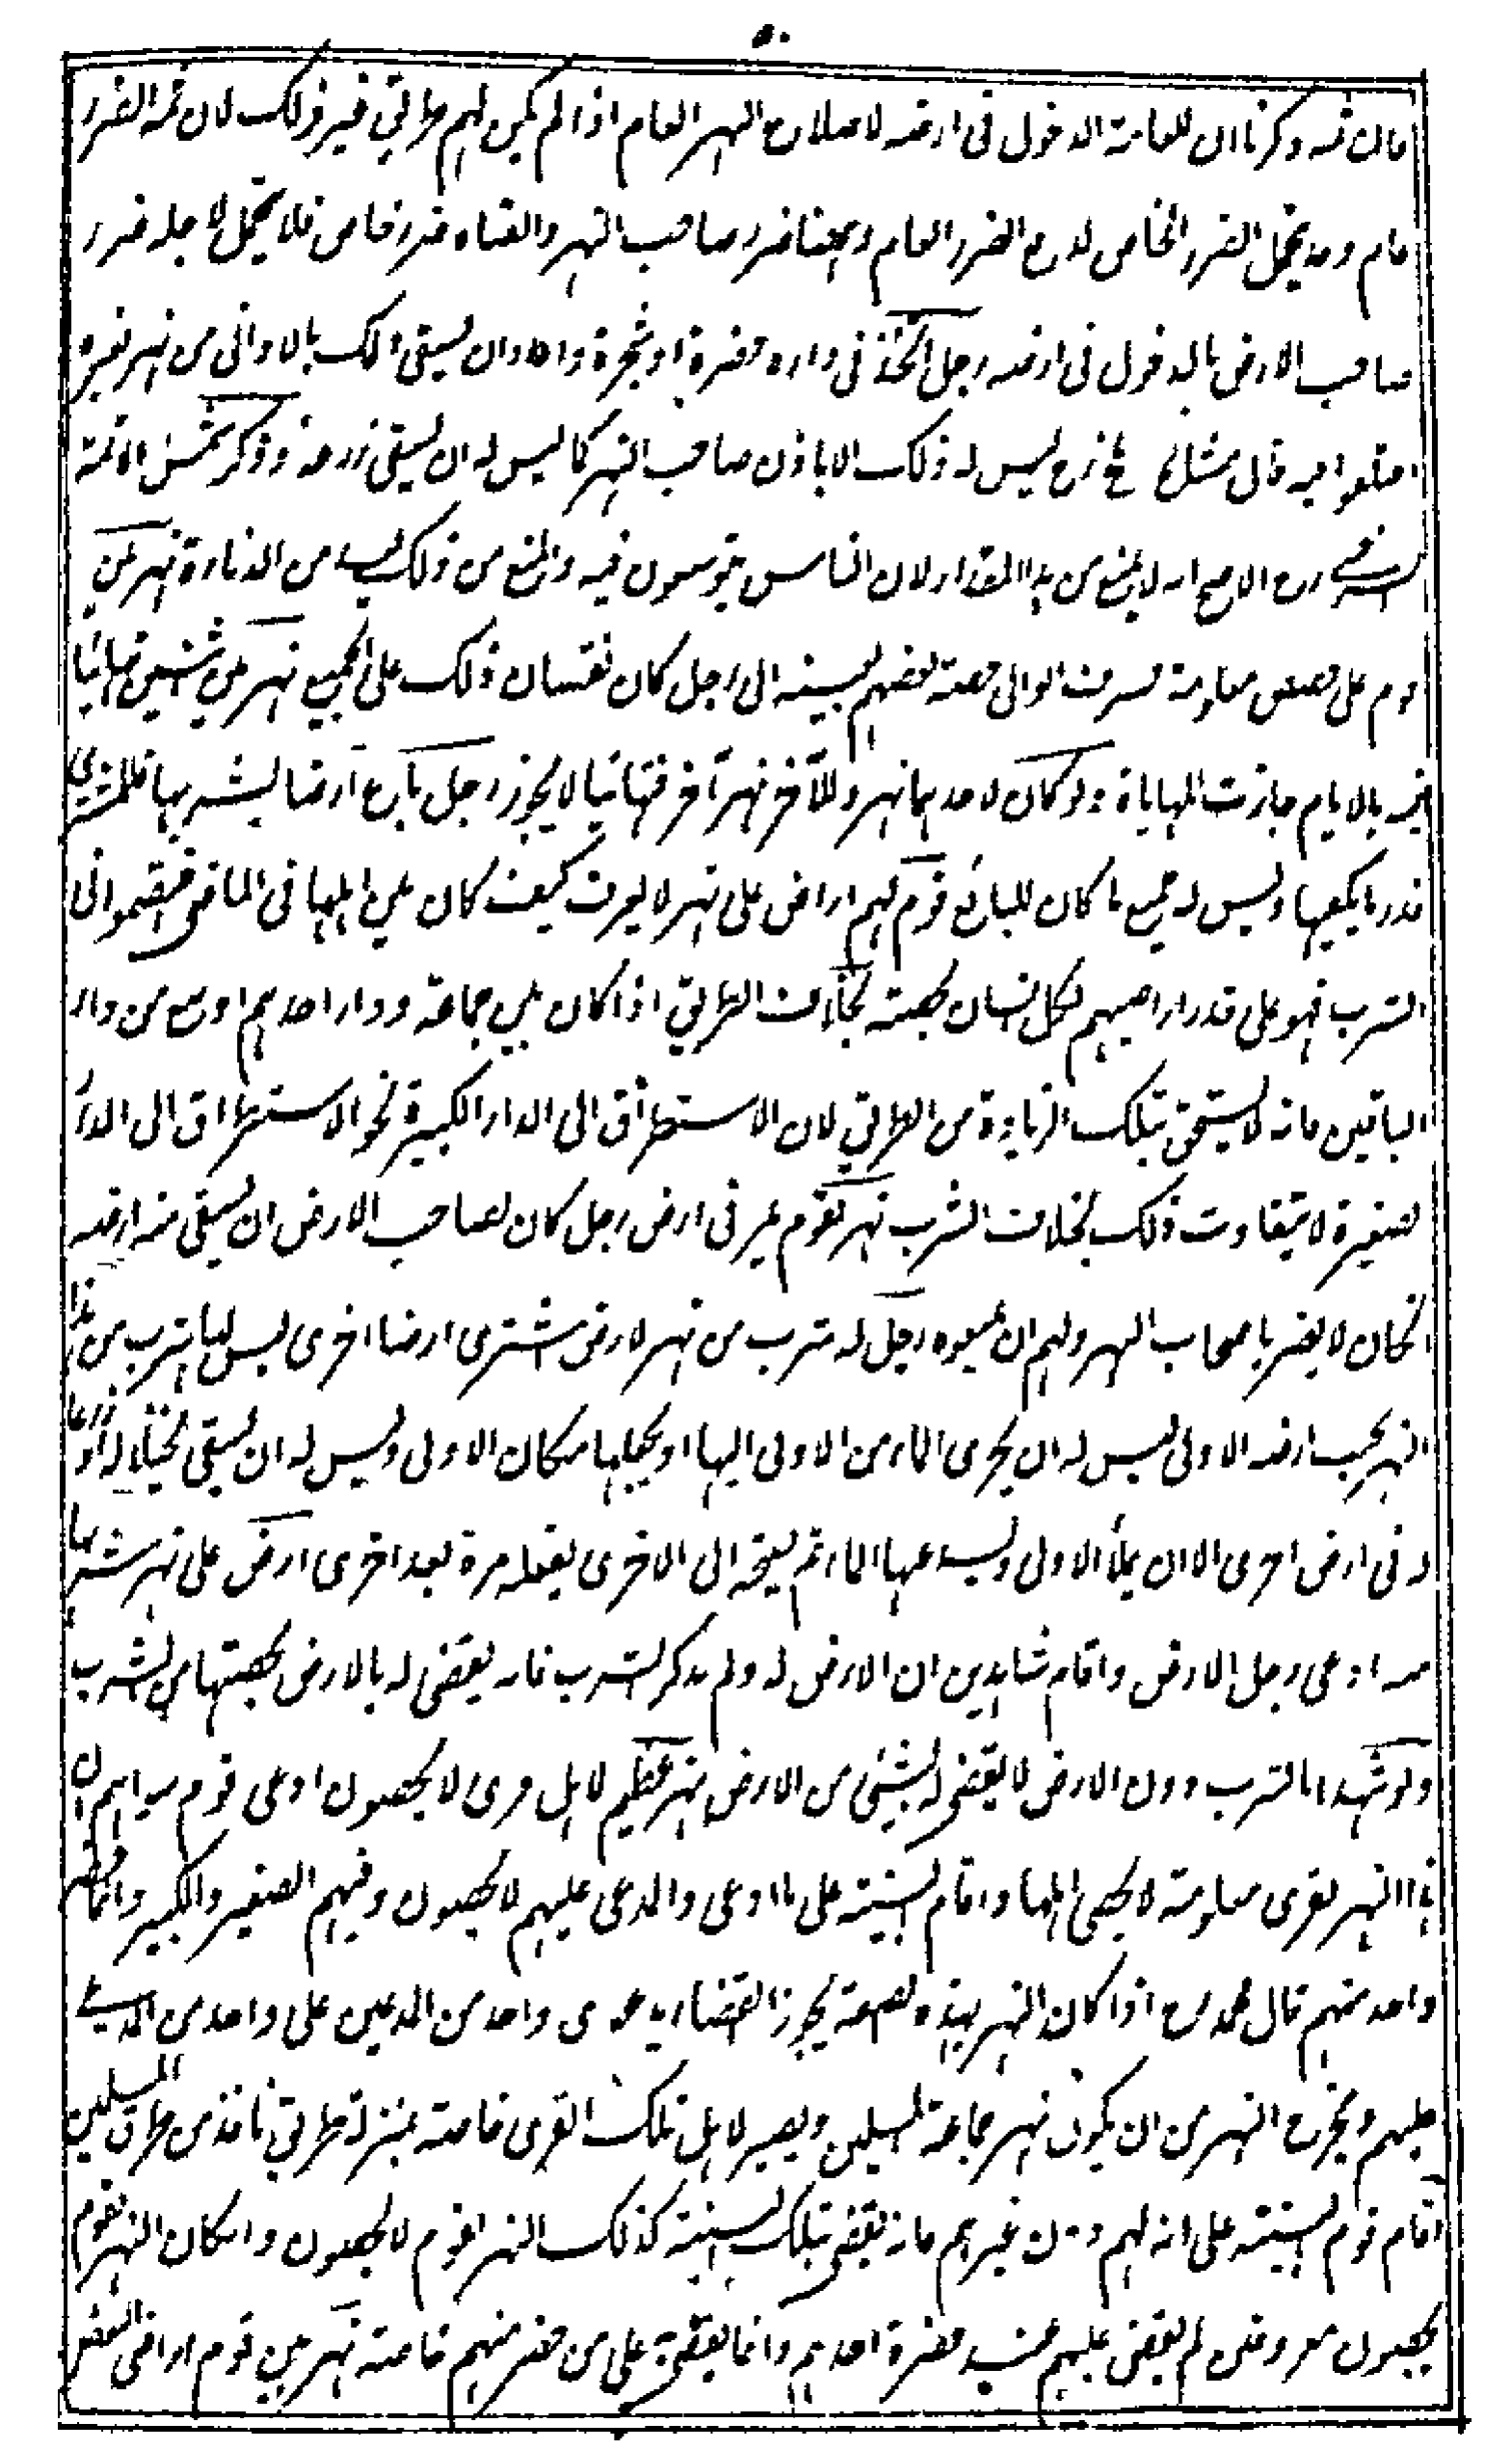 فان ثمه ذكرنا ان للعامة الدخول فى ارضه لاصلاح النهر العام اذا لم يكن لهم طريق غير ذلك لان ثمه الضرر
عام وقد يتحمل الضرر الخاص لدفع الضرر العام وههنا ضرر صاحب النهر والقناه ضرر خاص فلا يتحمل لاجله ضرر
صاحب الارض بالدخول فى ارضه رجل اتخذ فى داره خضرة او شجرة واراد ان يسقى ذلك بالاوانى من نهر غيره
اختلفوا فيه قال مشائخ بلخ رح ليس له ذلك الا باذن صاحب النهر كما ليس له ان يسقى زرعه وذكر شمس الائمة
السرخسى رح الاصح انه لا يمنع من هذا المقدار لان الناس يتوسعون فيه والمنع من ذلك يعد من الدناءة نهر بين
قوم على حصص معلومة فصرف الوالى حصة بعضهم بعينه الى رجل كان نقصان ذلك على الجميع نهر بين شيئين تهائيا
فيه بالايام جازت المهاياة ولو كان لاحدهما نهر وللآخر نهر آخر فتهائيا لا يجوز رجل باع ارضا بشربها فللمشترى
قدر ما يكفيها وليس له جميع ما كان للبائع قوم لهم اراض على نهر لا يعرف كيف كان بين اهلها فى الماضى فيقسموا فى
الشرب فهو على قدر اراضيهم لكل انسان بحصته بخلاف الطريق اذا كان بين جماعة ودار احدهم اوسع من دار
الباقين فانه لا يستحق بتلك الزيادة من الطريق لان الاستطراق الى الدار الكبيرة نحو الاستطراق الى الدار
لصغيرة لا يتفاوت ذلك بخلاف الشرب نهر لقوم يمر فى ارض رجل كان لصاحب الارض ان يسقى منه ارضه
انكان لا يضر باصحاب النهر ولهم ان يمنعوه رجل له شرب من نهر لارض اشترى ارضا اخرى ليس لها شرب من هذا
النهر بجنب ارضه الاولى ليس له ان يجرى الماء من الاولى اليها او يجعلها مكان الاولى وليس له ان يسقى نخيلا له او زرعا
له فى ارض اخرى الا ان يملأ الاولى ويسد عنها الماء ثم يفتحه الى الاخرى يفعله مرة بعد اخرى ارض على نهر شربها
منه ادعى رجل الارض واقام شاهدين ان الارض له ولم يذكر الشرب فانه يقضى له بالارض بحصتها من الشرب
ولو شهدا بالشرب دون الارض لا يقضى له بشئ من الارض نهر عظيم لاهل قرى لا يحصون ادعى قوم سواهم ان
هذا النهر لقرى معلومة لا يحصى اهلها واقام البينة على ما ادعى والمدعى عليهم لا يحصون وفيهم الصغير والكبير وانما حضر
واحد منهم قال محمد رح اذا كان النهر بهذه الصفة يجوز القضاء بدعوى واحد من المدعين على واحد من المدعى
عليهم ويخرج النهر من ان يكون نهر جماعة المسلمين ويصير لاهل تلك القرى خاصة بمنزلة طريق نافذ من طرق المسلمين
اقام قوم البينة على انه لهم دون غيرهم فانه يقضى بتلك البينة كذلك النهر لقوم لا يحصون وانكان النهر لقوم
يحصون معروفين لم يقض عليهم عند حضرة احدهم وانما يقضى على من حضر منهم خاصة نهر بين قوم اراضى البعض